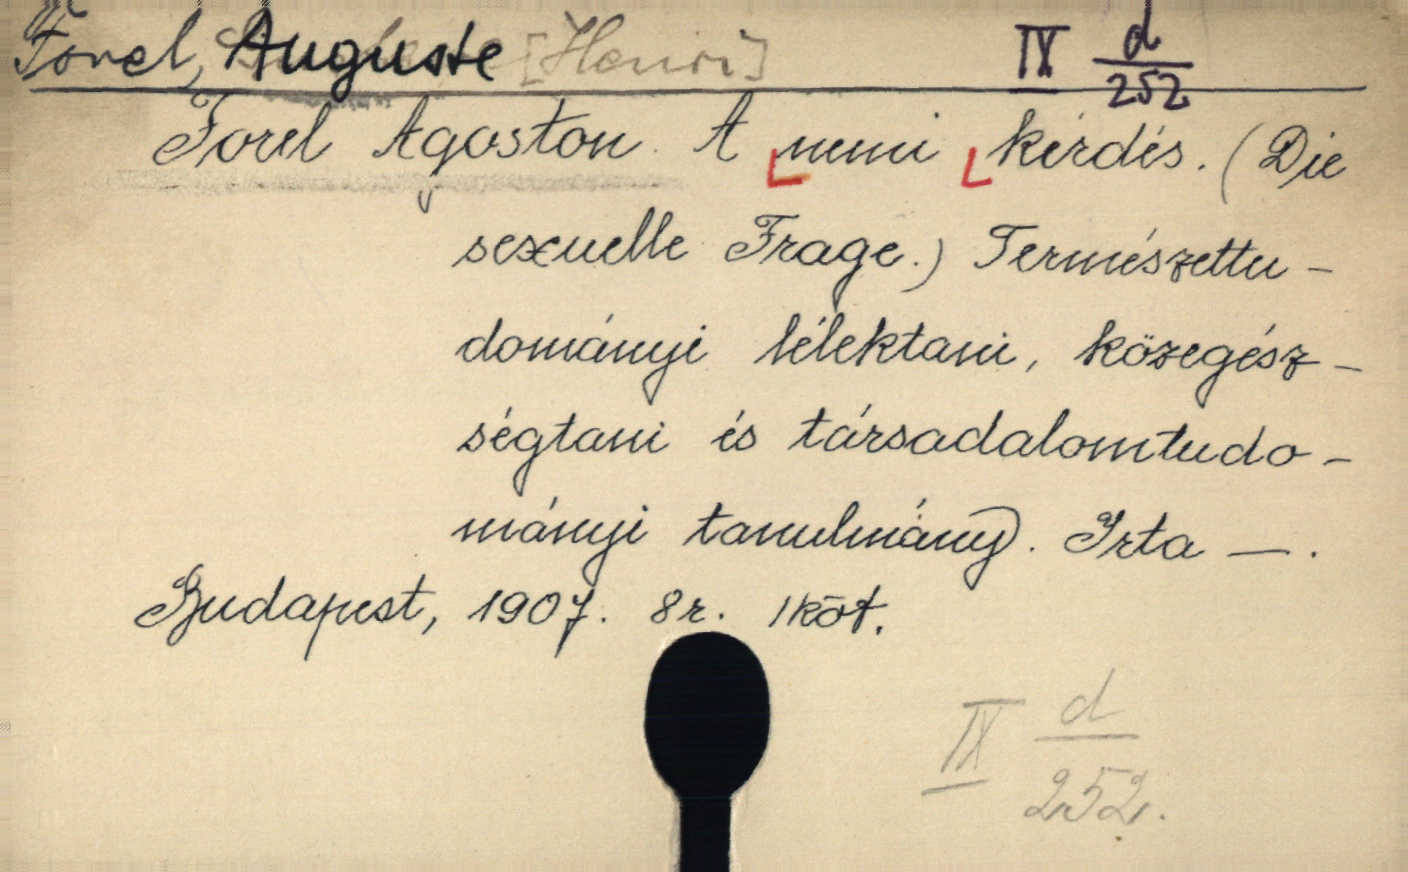 Forel, Auguste [Henri] IX d/252
Forel Ágoston. A nemi kérdés. (Die
sexuelle Frage.) Természettu-
dományi lélektani, közegész-
ségtani és társadalomtudo-
mányi tanulmány). Irta —.
Budapest, 1907. 8r. 1 köt.
IX d/252.